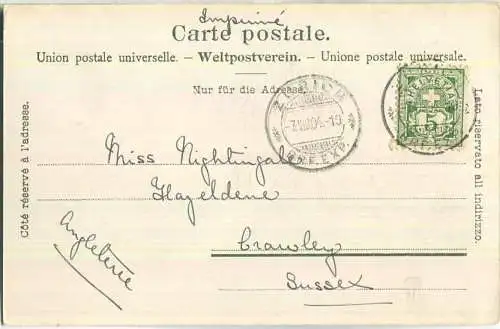 Imprimé
Carte postale.
Union postale universelle. – Weltpostverein. – Unione postale universale.
Nur für die Adresse.
Côté réservé à l'adresse.
Lato riservato all indirizzo.
ZÜRICH
BRF. EXP.
HELVETIA
5
Miss Nightingale
Hazeldene
Crawley
Sussex
Angleterre